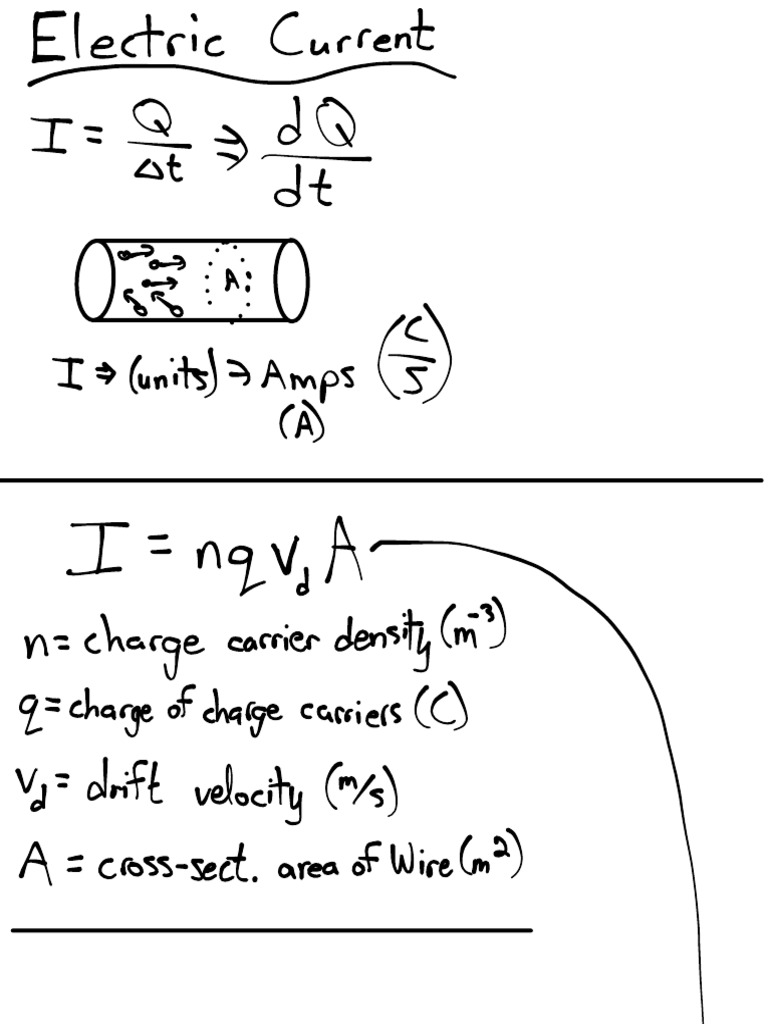 Electric Current
I = Q/Δt ⇒ dQ/dt
A
I ⇒ (units) ⇒ Amps (C/s)
(A)
I = nqv_dA
n = charge carrier density (m⁻³)
q = charge of charge carriers (C)
v_d = drift velocity (m/s)
A = cross-sect. area of Wire (m²)